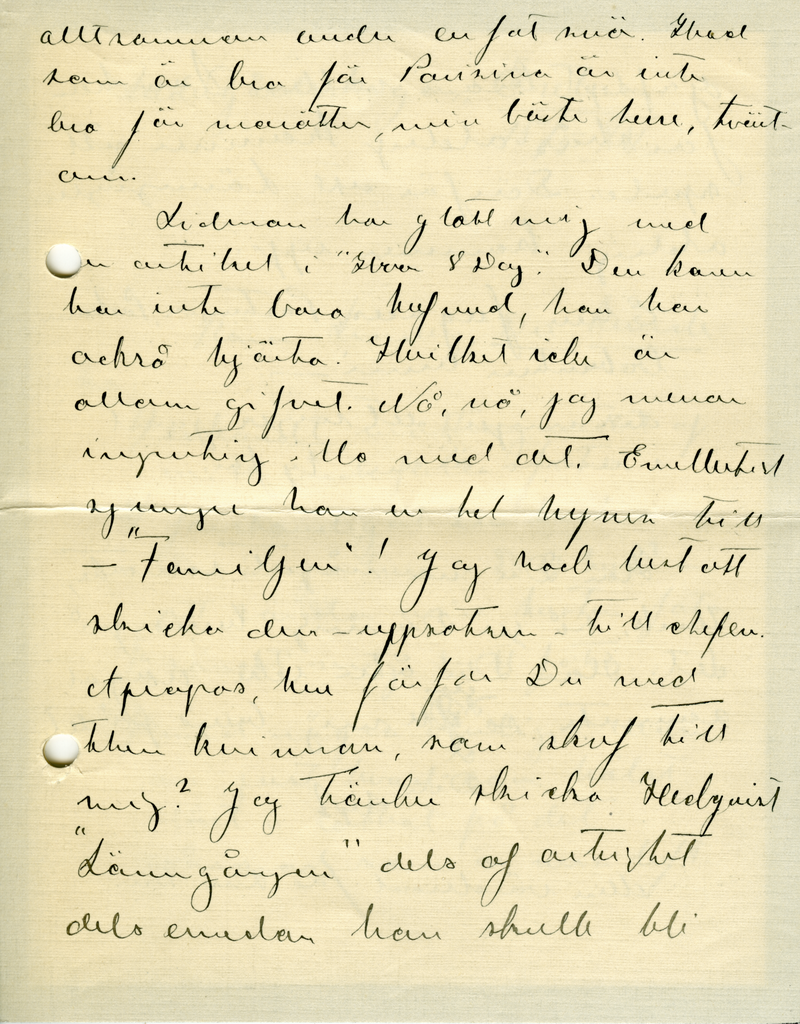 alltsamman under en fot snö. Hvad
som är bra för Parisina är inte
bra för morötter, min bäste herre, tvärt-
om.
Lidman har glatt mig med
en artikel i "Hvar 8 Dag". Den karlen
har inte bara hufvud, han har
också hjärta. Hvilket icke är
allom gifvet. Nå, nå, jag menar
ingenting illa med det. Emellertid
sjunger han en hel hymn till
– "Familjen"! Jag hade lust att
skicka den – uppsatsen – till chefen.
Apropos, hur förfor Du med
den kvinnan, som skref till
mig? Jag tänker skicka Hedqvist
"Lönngången" dels af artighet
dels emedan han skulle bli